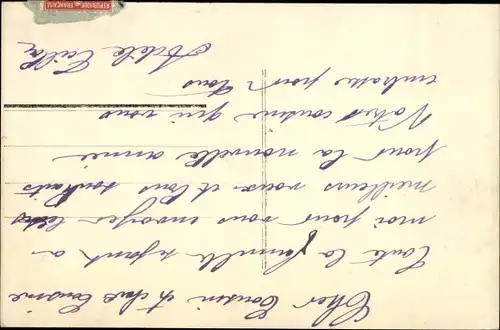 Cher Cousin et chère Cousine
Toute la famille se joint a
moi pour vous envoyer les
meilleurs vœux et bons souhaits
pour la nouvelle année
Votre cousine qui vous
embrasse pour tous
Adèle
REPUBLIQUE FRANÇAISE